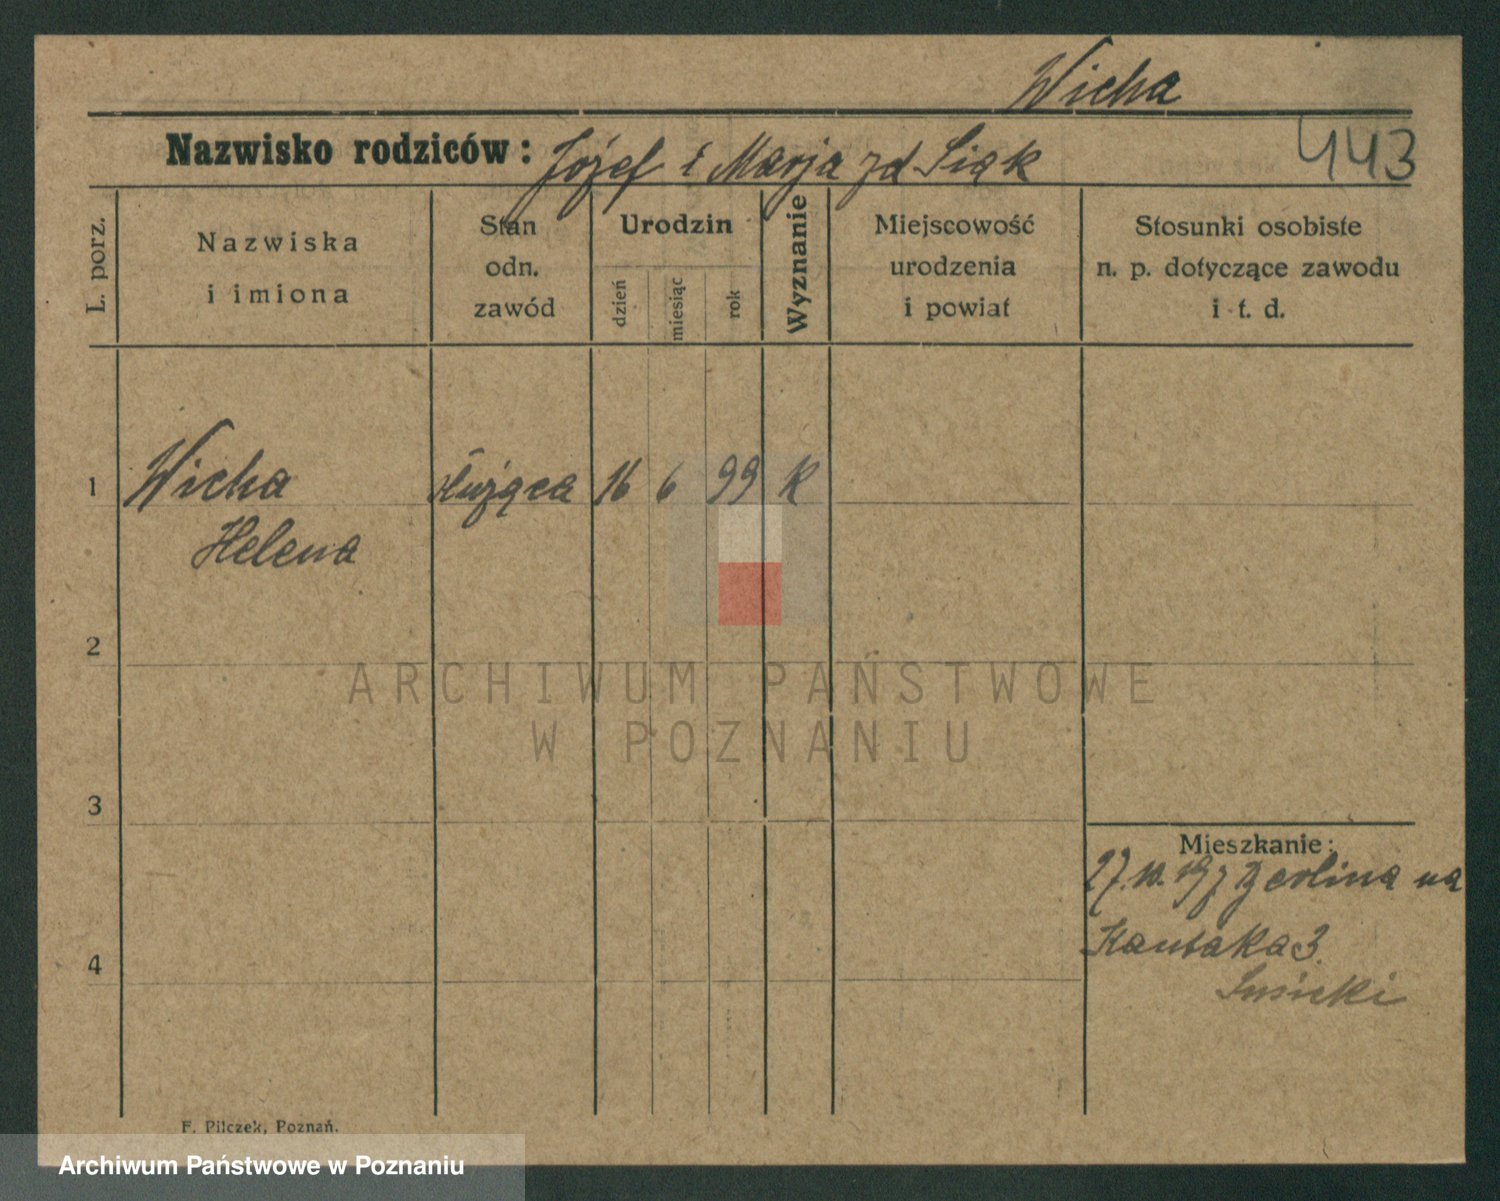 Wicha
Nazwisko rodziców: Józef i Marja zd Siąk
443
L. porz.
Nazwiska
i imiona
Stan
odn.
zawód
Urodzin
dzień
miesiąc
rok
Wyznanie
Miejscowość
urodzenia
i powiat
Stosunki osobiste
n. p. dotyczące zawodu
i t. d.
1 Wicha służąca 16 6 99 K
Helena
2
3
4
Mieszkanie:
27.10.19 z Berlina na
Kantaka 3.
F. Pilczek, Poznań.
ARCHIWUM PAŃSTWOWE
W POZNANIU
Archiwum Państwowe w Poznaniu